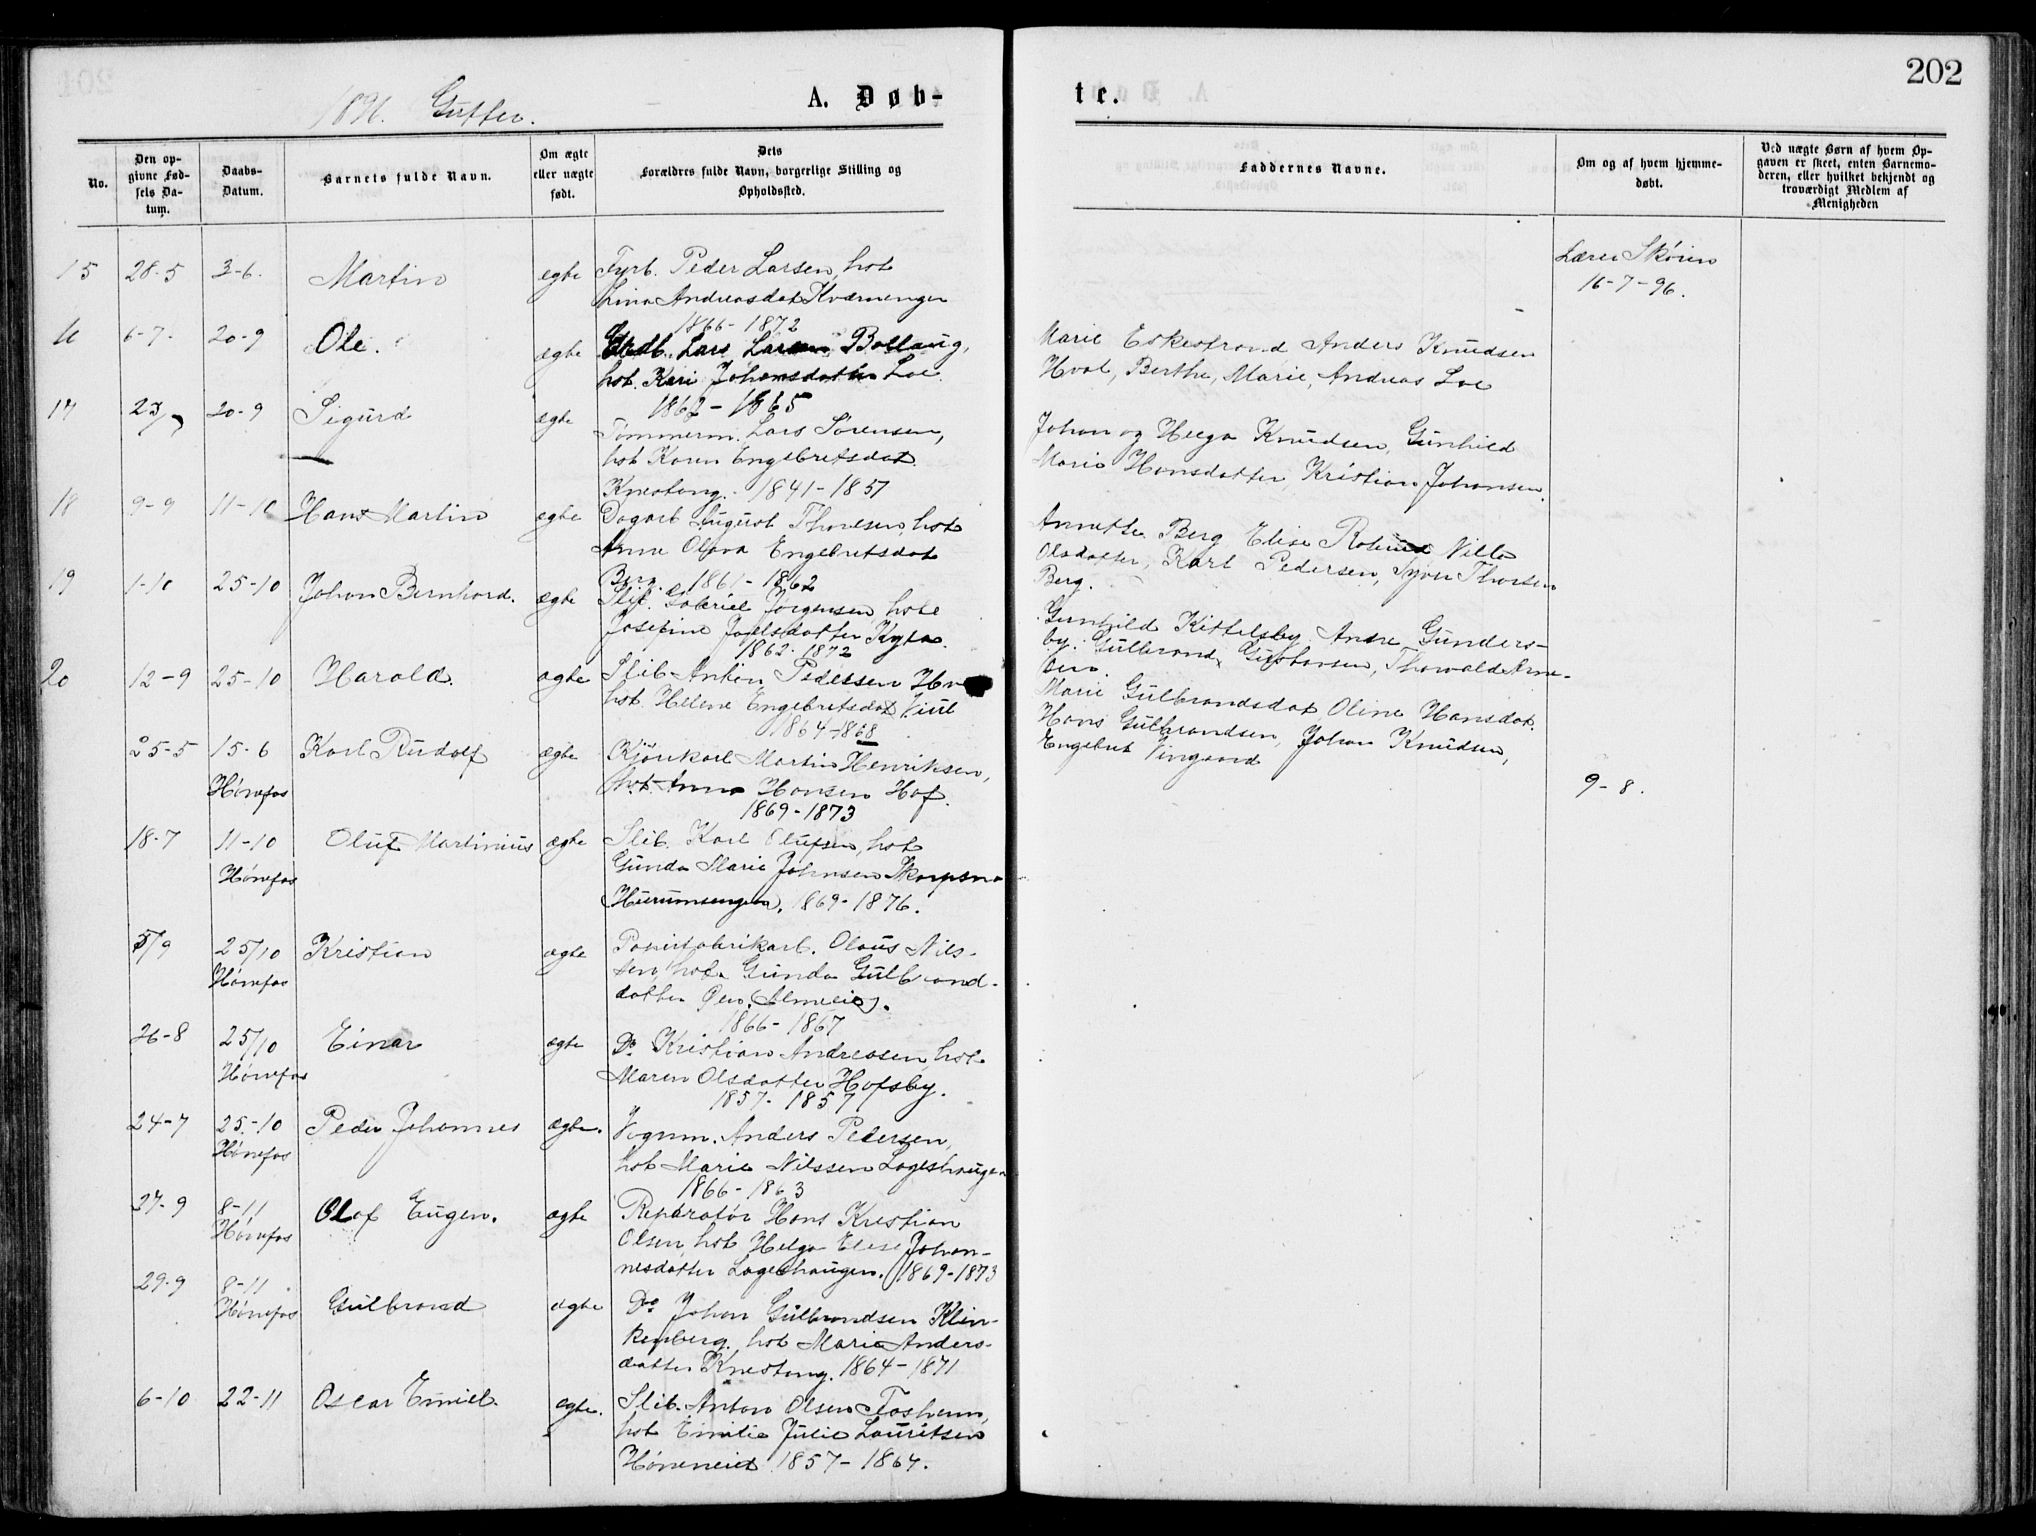 202
1896. Gutter.
A. Døb-
te.
No.
Den op-
givne Fød-
sels Da-
tum.
Daabs-
Datum.
Barnets fulde Navn.
Om ægte
eller uægte
født.
Dets
Forældres fulde Navn, borgerlige Stilling og
Opholdssted.
Faddernes Navne.
Om og af hvem hjemme-
døbt.
Ved uægte Børn af hvem Op-
gaven er skeet, enten Barnemo-
deren, eller hvilket bekjendt og
troværdigt Medlem af
Menigheden
15 28-5 3-6. Martin egte Fyrb. Peder Larsen, hst
Lina Andreasdat Kværnengen
1866-1872
Lærer Skøien
16-7-96.
16 6-7- 20-9 Ole. ægte Lars Larsen Bollaug,
hst. Kari Johansdatter Loe.
1862-1865
Marie Eskestrand Anders Knudsen
Hval, Berthe, Marie, Andreas Loe
17 23/7 20-9 Sigurd egte Tømmerm. Lars Sørensen,
hst Karen Engebretsdat.
Knestang. 1841-1857
Johan og Helga Knudsen, Gunhild
Marie Hansdatter, Kristian Johansen.
18 9-9 11-10 Hans Martin egte Dagarb August Thoresen, hst
Anna Olava Engebretsdat
Berg. 1861-1862
Annette Berg Elise Nille
Olsdatter, Karl Pedersen, Syver Thoresen
Berg.
19 1-10 25-10 Johan Bernhard. ægte Slib. Gabriel Jørgensen hste
Josefine Joelsdatter
1862-1872
Gunhild Kittelsby, Andre Gunders-
by. Gulbrand Gustavsen, Thorvald Arne-
sen.
20 12-9 25-10 Harald. ægte Slib Anton Pedersen
hst. Helene Engebretsdat Viul
1864-1868
Marie Gulbrandsdat, Oline Hansdat.
Hans Gulbrandsen, Johan Knudsen,
Engebret Vingaard
25-5 15-6 Karl Rudolf ægte Kjørekarl Martin Henriksen,
Hønefos hst. Anna Hansen Hof.
1869-1873
9-8.
18-7 11-10 Oluf Martinius ægte Slib. Karl Olufsen, hst
Hønefos Gunda Marie Johnsen
1869-1876.
5/9 25/10 Kristian ægte Papirfabrikarb. Olaus Nils-
Hønefos sen, hst. Gunda Gulbrand-
datter
1866-1867
26-8 25/10 Einar ægte Do. Kristian Andreasen, hst.
Hønefos Maren Olsdatter Hofsby.
1857-1857
24-7 25-10 Peder Johannes ægte. Vognm. Anders Pedersen,
Hønefos hst Marie Nilssen Lageshaugen
1866-1863
27-9 8-11 Olaf Eugen. ægte Reparatør Hans Kristian
Hønefos Olsen, hst Helga Elise Johan-
nesdatter Lageshaugen. 1869-1873
29-9 8-11 Gulbrand ægte Do. Johan Gulbrandsen Klin-
Hønefos kenberg, hst Marie Anders-
datter Knestang. 1864-1871
6-10 22-11 Oscar Emiel. ægte. Slib. Anton Olsen Fosheim,
hst Emilie Julie Lauritsen
1857-1864.